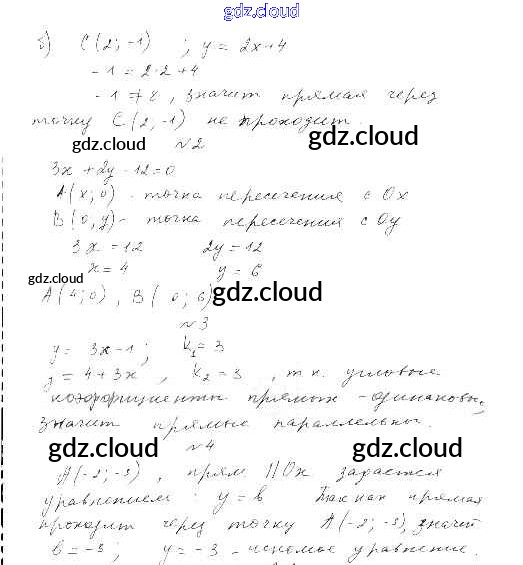 gdz.cloud
б) C(2; -1) ; y = 2x+4
-1 = 2·2+4
-1 ≠ 8, значит прямая через
точку C(2; -1) не проходит.
gdz.cloud gdz.cloud
№2
3x + 2y - 12 = 0
gdz.cloud
A(x; 0) - точка пересечения с Ox
B(0, y) - точка пересечения с Oy
3x = 12 2y = 12
x = 4 y = 6
gdz.cloud
A(4; 0), B(0; 6)
gdz.cloud
№3
y = 3x-1; k₁ = 3
y = 4+3x, k₂ = 3, т.к. угловые
коэффициенты прямых - одинаковы,
значит прямые параллельны.
gdz.cloud gdz.cloud
№4
A(-2; -3), прям. || Ox задается
уравнением: y = b Так как прямая
проходит через точку A(-2; -3), значит
b = -3; y = -3 - искомое уравнение.